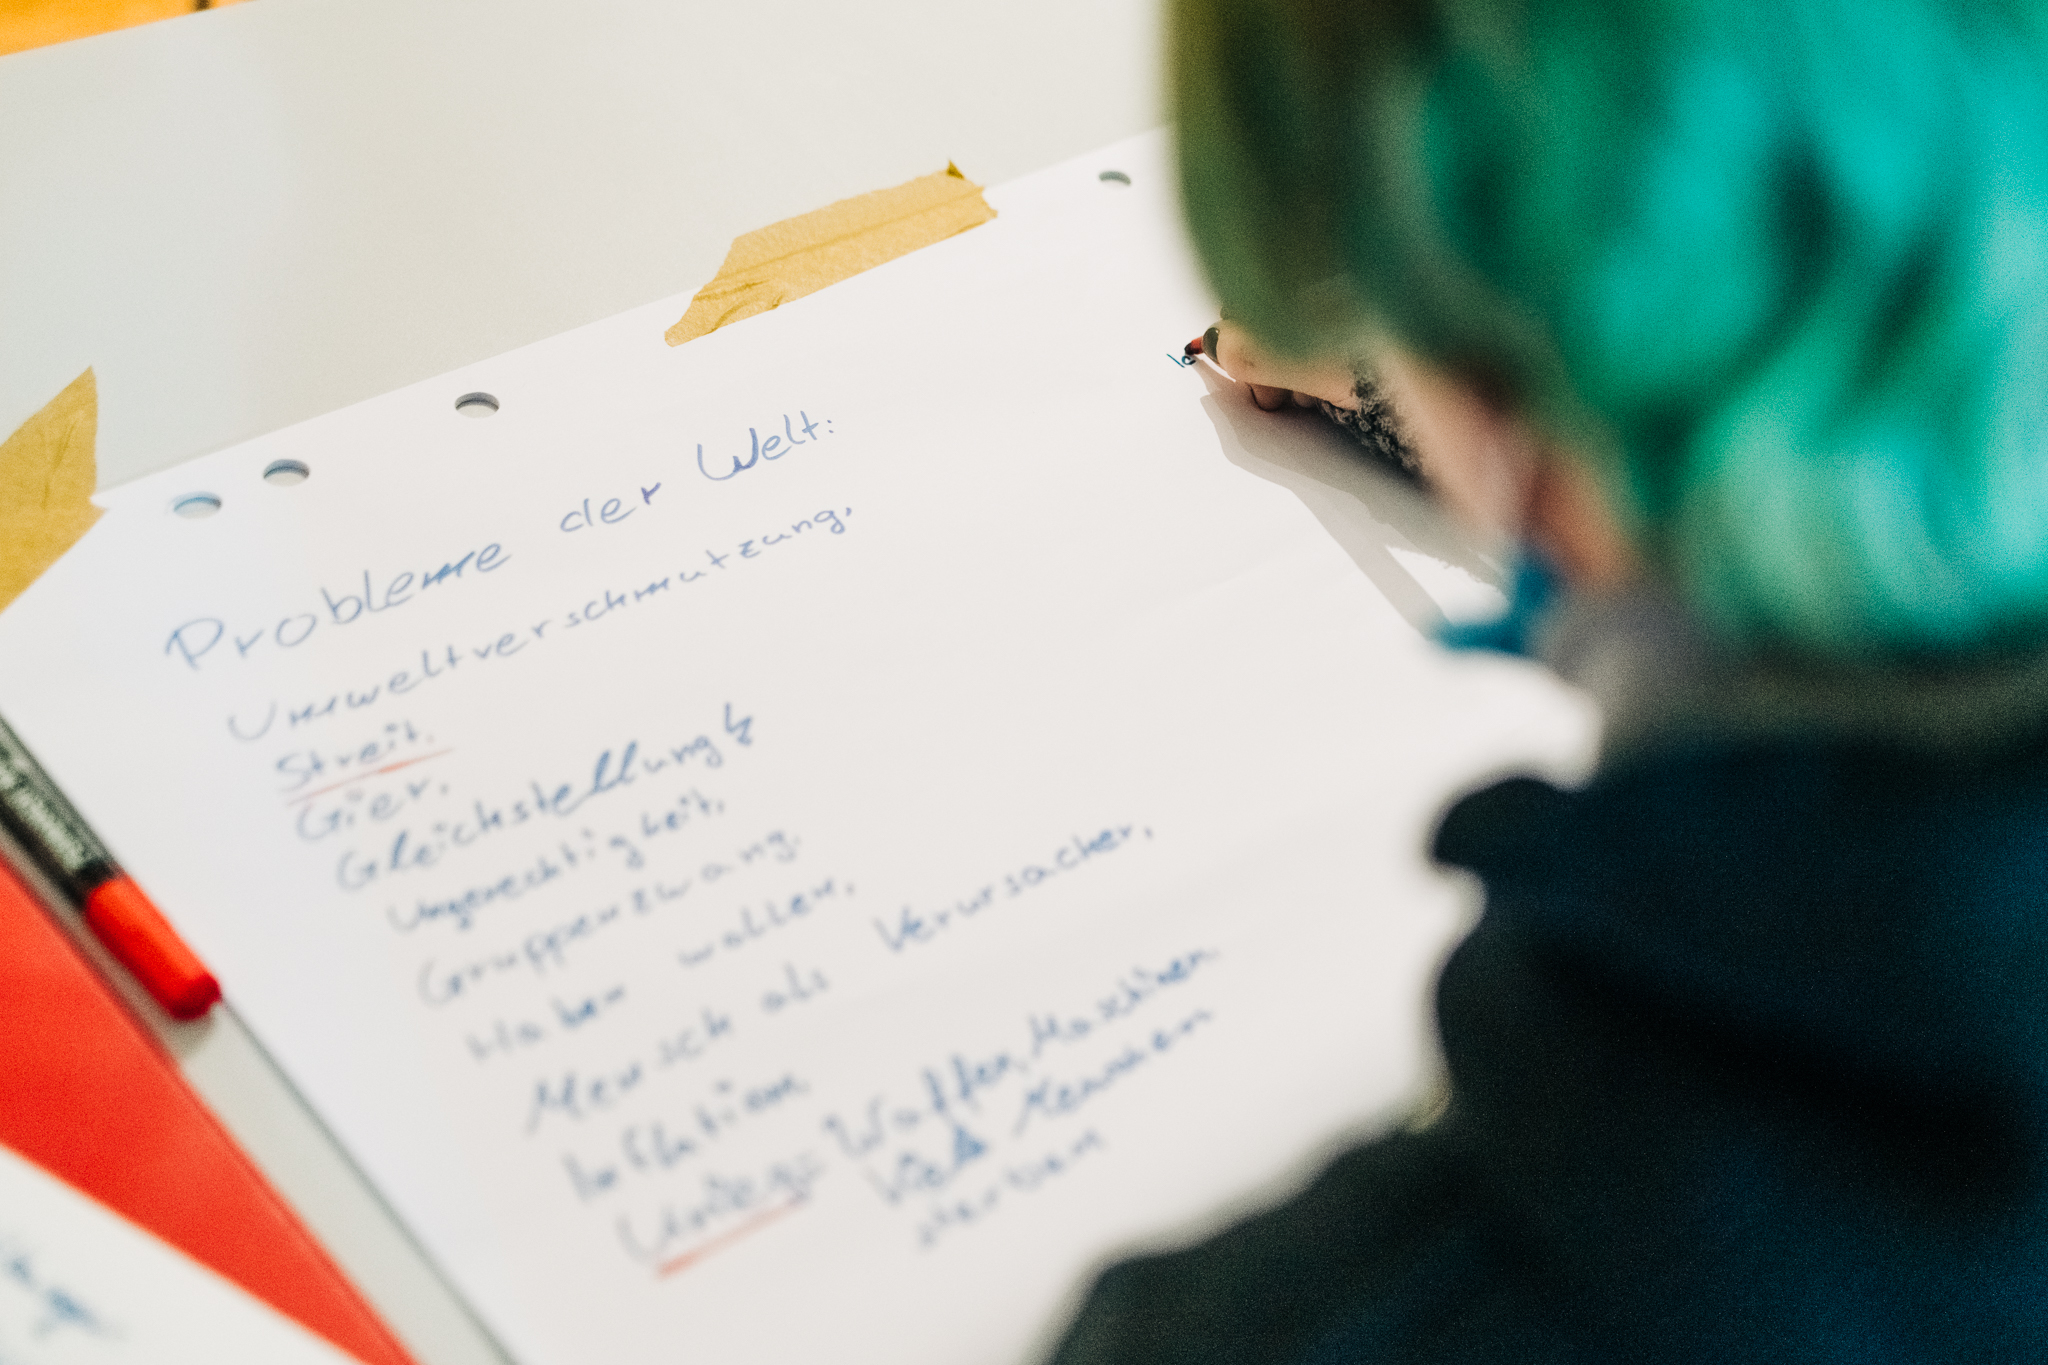 Probleme der Welt:
Umweltverschmutzung,
Streit.
Gier.
Gleichstellung
Ungerechtigkeit.
Gruppenzwang.
Haben wollen.
Mensch als Verursacher,
Inflation
Krieg = Waffen, Maschinen
Viele Menschen
sterben